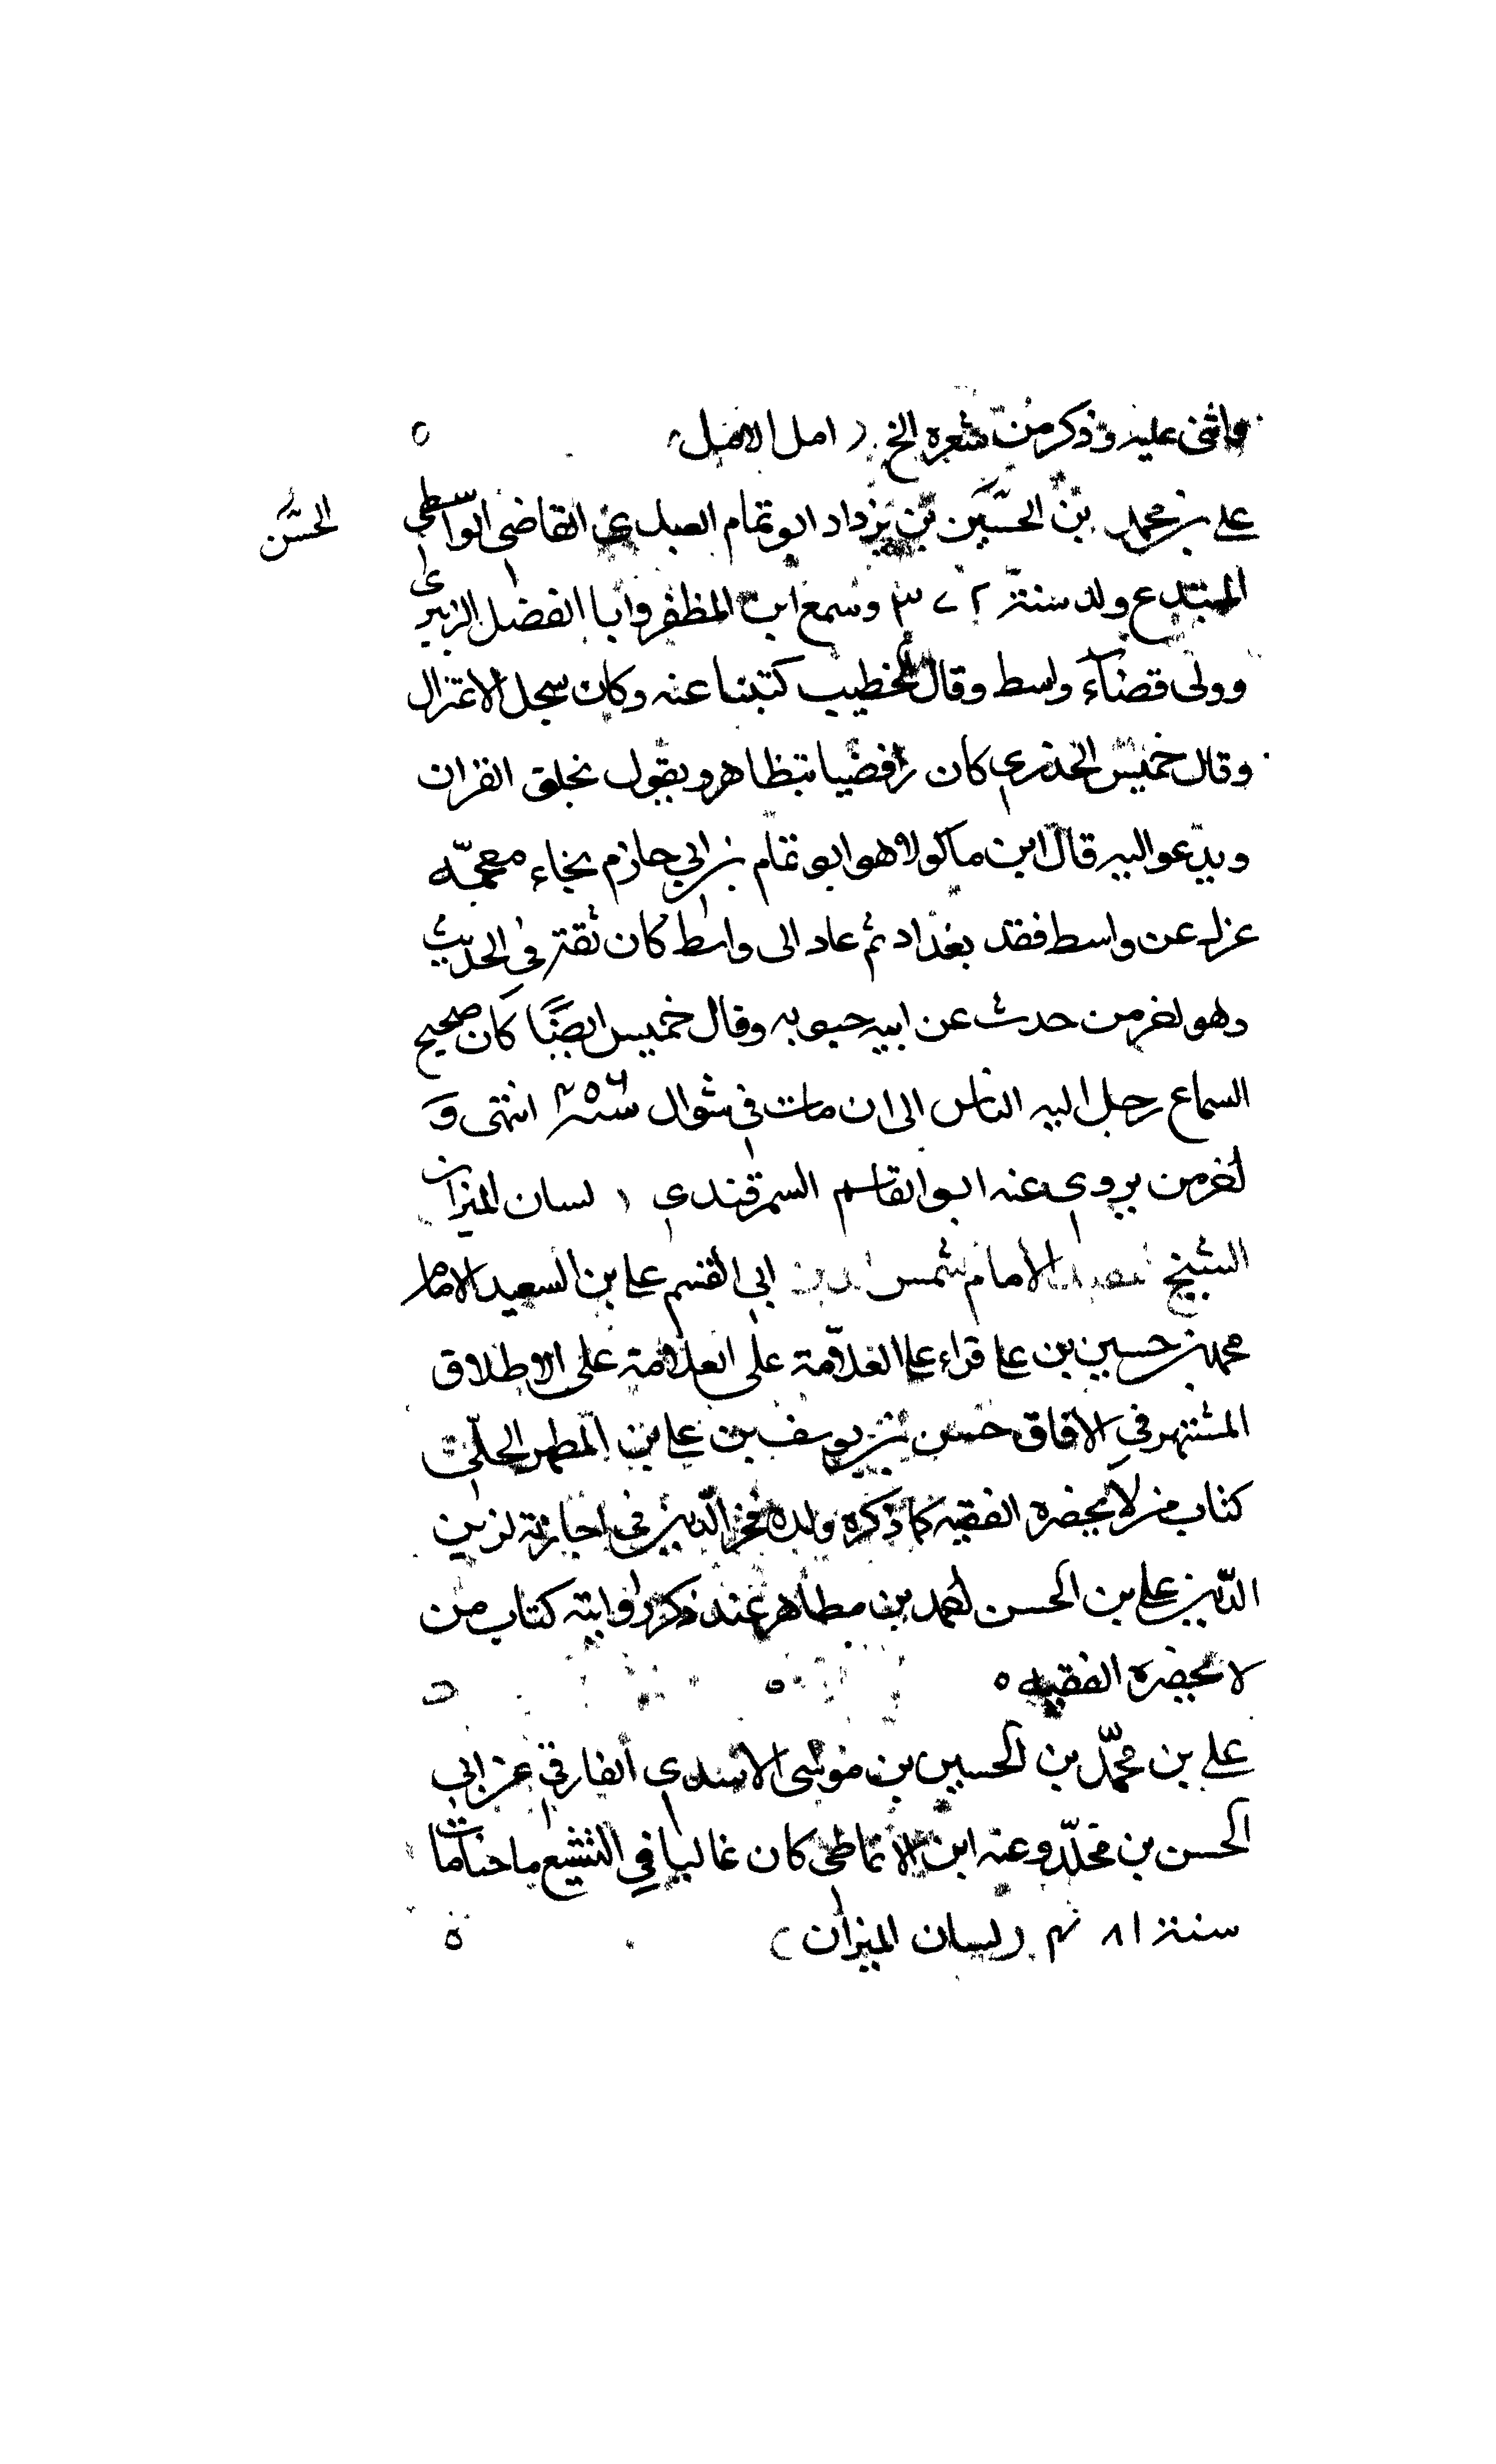 واثنى عليه وذكر من شعره الخ ( امل الامل
علي بن محمد بن الحسين بن يزداد ابو تمام العبدي القاضي الواسطي
الحسن
المبتدع ولد سنة ٣٧٢ وسمع ابن المظفر وابا الفضل الزهري
وولى قضاء واسط وقال الخطيب كتبنا عنه وكان ينتحل الاعتزال
وقال خميس الحذرى كان رافضيا يتظاهر ويقول بخلق القران
ويدعو اليه قال ابن ماكولا هو ابو تمام بن ابي حازم بخاء معجمه
عزل عن واسط فقد بغداد ثم عاد الى واسط كان ثقة في الحديث
وهو اخر من حدث عن ابيه حيويه وقال خميس ايضا كان صحيح
السماع رحل اليه الناس الى ان مات في شوال سنة ٤٥٦ انتهى و
اخر من يروى عنه ابو القاسم السمرقندي ( لسان الميزان
الشيخ الامام شمس الدين ابي القسم علي بن السعيد الامام
محمد بن حسين بن علي قراء على العلامة على العلامة على الاطلاق
المشتهر في الافاق حسن بن يوسف بن علي بن المطهر الحلي
كتاب من لا يحضره الفقيه كما ذكره ولده فخر الدين في اجازته لزين
الدين علي بن الحسن احمد بن مطاهر عند ذكر روايته كتاب من
لا يحضره الفقيه ٥
علي بن محمد بن الحسين بن موسى الاسدي الفارقي عن ابي
الحسن بن مخلد وعنه ابن الانماطي كان غاليا في التشيع مات
سنة ٤٨١ ( لسان الميزان )